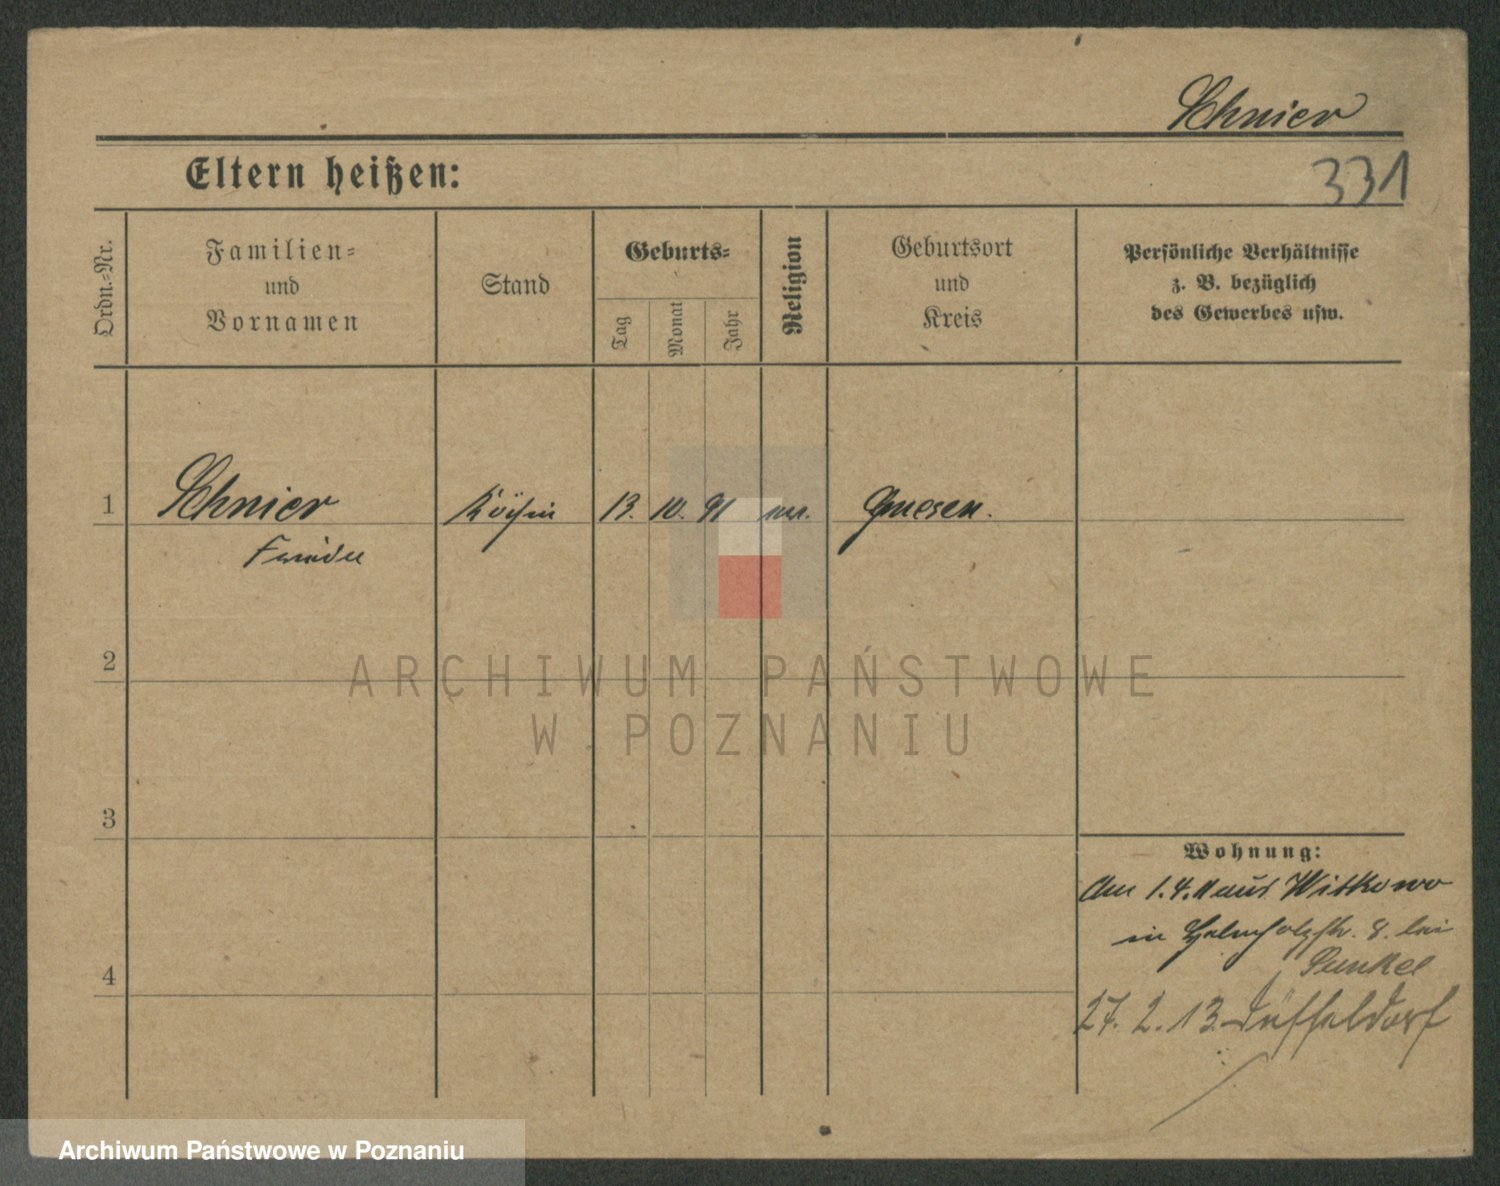 Schnier
331
Eltern heißen:
Ordn.-Nr.
Familien-
und
Vornamen
Stand
Geburts-
Tag
Monat
Jahr
Religion
Geburtsort
und
Kreis
Persönliche Verhältnisse
z. B. bezüglich
des Gewerbes usw.
1 Schnier Köchin 13. 10. 91 Gnesen.
2
3
4
Wohnung:
Am 1.4.11 aus Witkowo
in Helmholzstr. 8. bei
Dunkel
27. 2. 13 Düsseldorf
ARCHIWUM PAŃSTWOWE
W POZNANIU
Archiwum Państwowe w Poznaniu